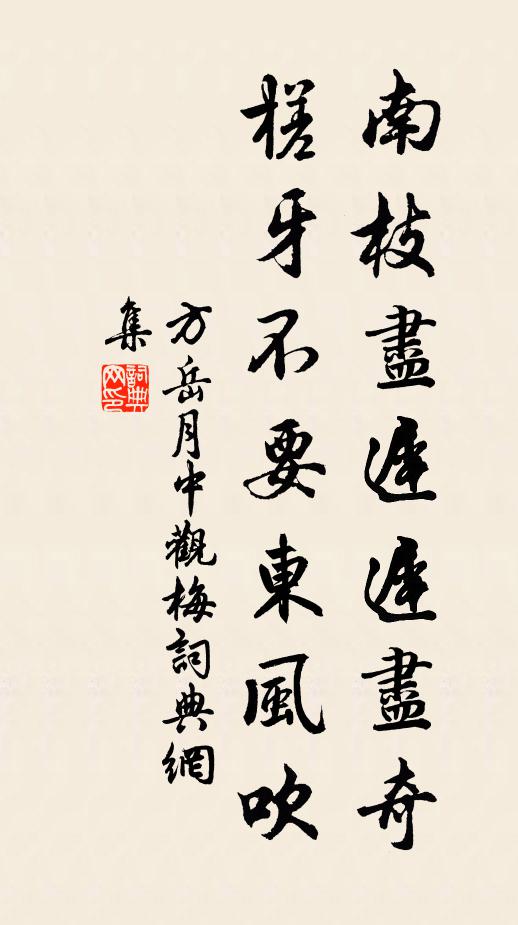 南枝盡遲遲盡奇
槎牙不要東風吹
方岳月中觀梅詞典網
集
詞典
网印